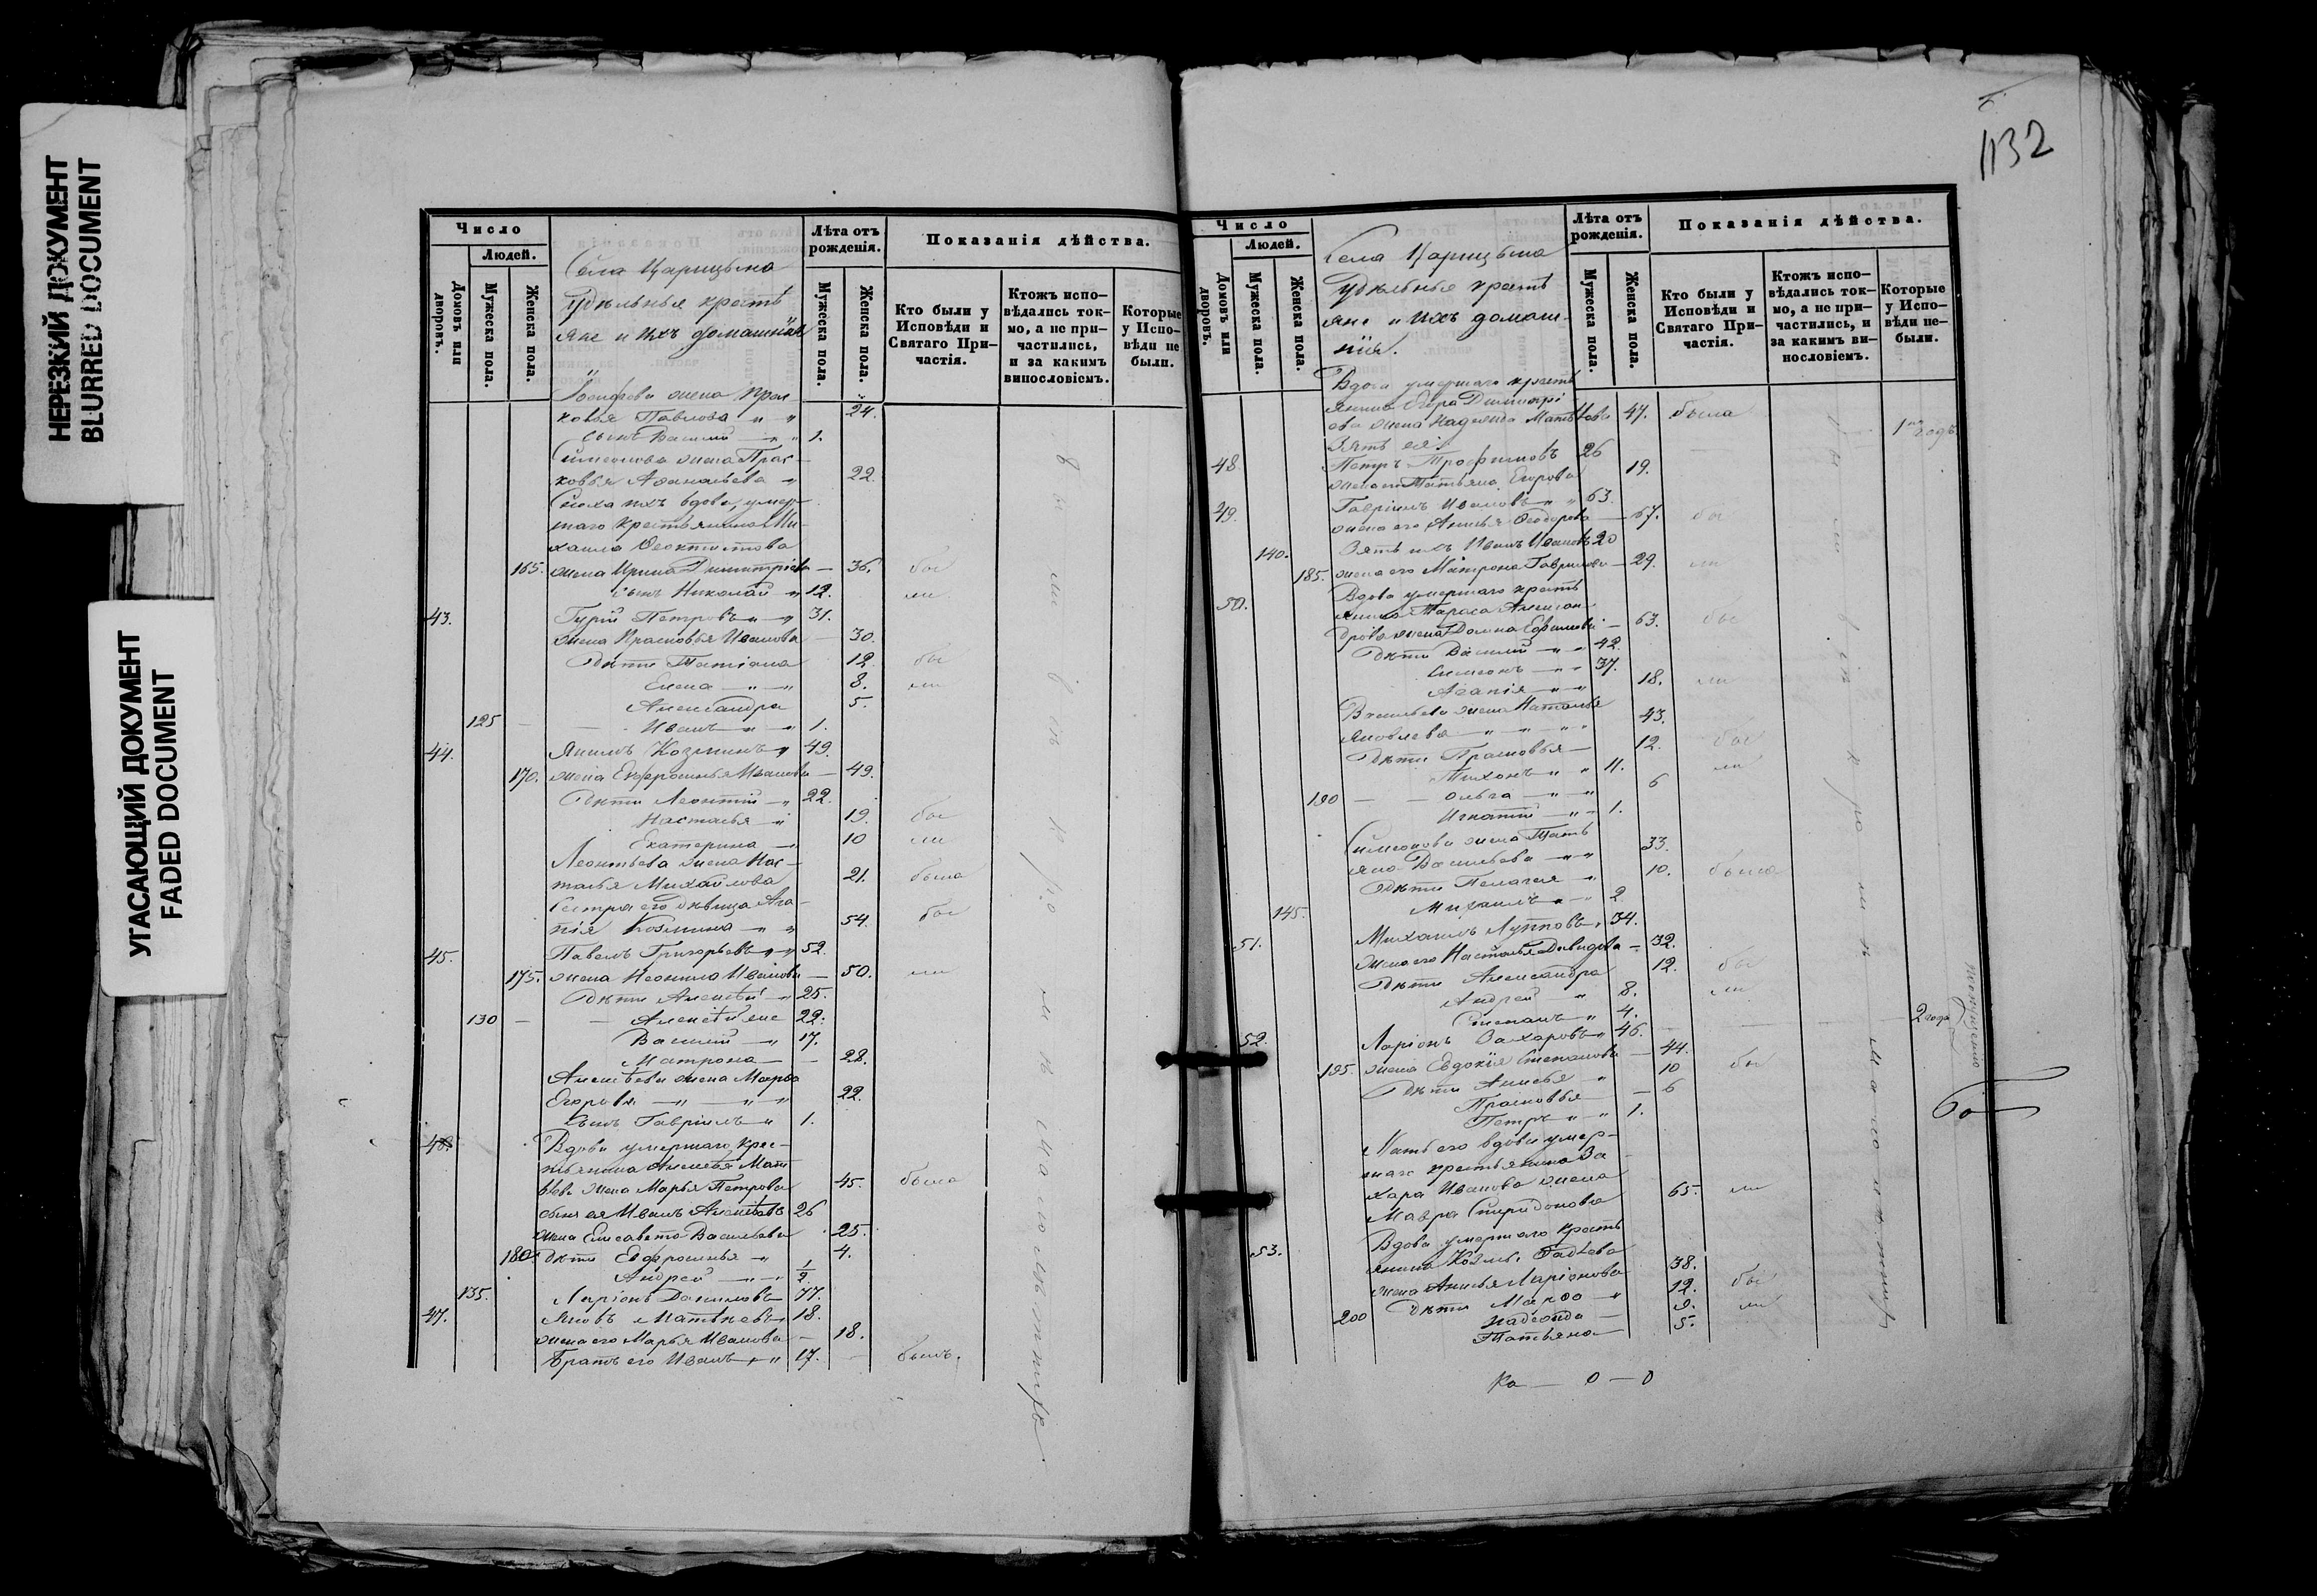 НЕРЕЗКИЙ ДОКУМЕНТ
BLURRED DOCUMENT
УГАСАЮЩИЙ ДОКУМЕНТ
FADED DOCUMENT
Число
Людей.
Домовъ или дворовъ.
Мужеска пола.
Женска пола.
Села Царицына
Удѣльныя кресть
яне и ихъ домашнія
Лѣта отъ рожденія.
Мужеска пола.
Женска пола.
Показанія дѣйства.
Кто были у Исповѣди и Святаго Причастія.
Ктожъ испо-вѣдались ток-мо, а не при-частились, и за какимъ винословіемъ.
Которые у Испо-вѣди не были.
жена Прас
ковья Павлова " " 24.
сынъ Василий — " 1.
Симеонова жена Прас-
ковья Афанасьева " 22.
Сноха ихъ вдова, умер-
шаго крестьянина Ми-
хаила Феоктистова
165. жена Ирина Димитріева — 36. бы
сынъ Николай " 12. ли
43. Гурій Петровъ " " 31.
жена Прасковья Иванова — 30.
Дѣти Татіана 12. бы
Елена — " — " 8. ли
Александра 5.
125 — — Иванъ — " — " 1.
44. Якимъ Козминъ " 49.
170. жена Евфросинья Иванова — 49.
Дѣти Леонтій — " 22.
Настасья — " 19. бы
Екатерина — " 10 ли
Леонтьева жена Нас-
тасья Михайлова 21. была
Сестра его дѣвица Ага-
пія Козмина — " " 54. бы
45. Павелъ Григорьевъ " " 52.
175. жена Неонила Иванова — 50. ли
Дѣти Алексѣй — " 25.
130 — — Алексѣй же 22.
Василий — " 17.
Матрона — — 28.
Алексѣева жена Марѳа
Егорова — " — " — " 22.
сынъ Гавріилъ " 1.
46. Вдова умершаго крес-
тьянина Алексѣя Мат
вѣева жена Марья Петрова 45. была
сынъ ея Иванъ Алексѣевъ 26
жена Елисавета Васильева 25.
180. Дѣти Евфросинья " 4.
Андрей — " — " 1/2.
135. Ларіонъ Даниловъ 77.
47. Яковъ Матвѣевъ 18.
жена его Марья Иванова — 18.
Братъ его Иванъ " " 17. — былъ.
были были у исповѣди
1132
Число
Людей.
Домовъ или дворовъ.
Мужеска пола.
Женска пола.
Села Царицына
Удѣльныя кресть
яне и ихъ домаш-
нія.
Лѣта отъ рожденія.
Мужеска пола.
Женска пола.
Показанія дѣйства.
Кто были у Исповѣди и Святаго При-частія.
Ктожъ испо-вѣдались ток-мо, а не при-частились, и за какимъ ви-нословіемъ.
Которые у Испо-вѣди не-были.
Вдова умершаго кресть
янина Егора Димитрі
ева жена Надежда Матвѣева 47. была
1й годъ.
Зять ея:
48. Петръ Трофимовъ 26
жена его Татьяна Егорова 19.
49. Гавріилъ Ивановъ " " 63.
жена его Анисья Феодорова — 67. бы
140. Зять ихъ Иванъ Ивановъ 20
185. жена его Матрона Гаврилова — 29. ли
50. Вдова умершаго кресть
янина Тараса Алексан
дрова жена Домна Ефимова — 63. бы
Дѣти Василий — " " 42.
Симеонъ — " — " 37.
Агапія — " — " 18. ли
Васильева жена Наталья
Яковлева — " " " " 43.
Дѣти Прасковья — 12. бы
Тихонъ " " 11. ли
190 — — Ольга — " — " 6
Игнатій — " — 1.
Симеонова жена Тать
яна Васильева — " " 33.
Дѣти Пелагея " 10. была
145. Михаилъ " — " 2
51. Михаилъ Лупповъ, 34.
жена его Настасья Давидова — 32.
Дѣти Александра 12. бы
Андрей — " 8. ли
Степанъ " 4.
52. Ларіонъ Захаровъ " 46. — — — 2 года
195. жена Евдокія Степанова — 44.
Дѣти Анисья — " 10 бы
Прасковья — — 6
Петръ " — " 1.
Мать его вдова умер-
шаго крестьянина За-
хара Иванова жена
Мавра Спиридонова 65. ли
53. Вдова умершаго кресть
янина Козмы Фадѣева
жена Анисья Ларіонова 38.
Дѣти Марѳа — " 12. бы
200 Надежда — 9. ли
Татьяна — 5.
Ка — 0 — 0